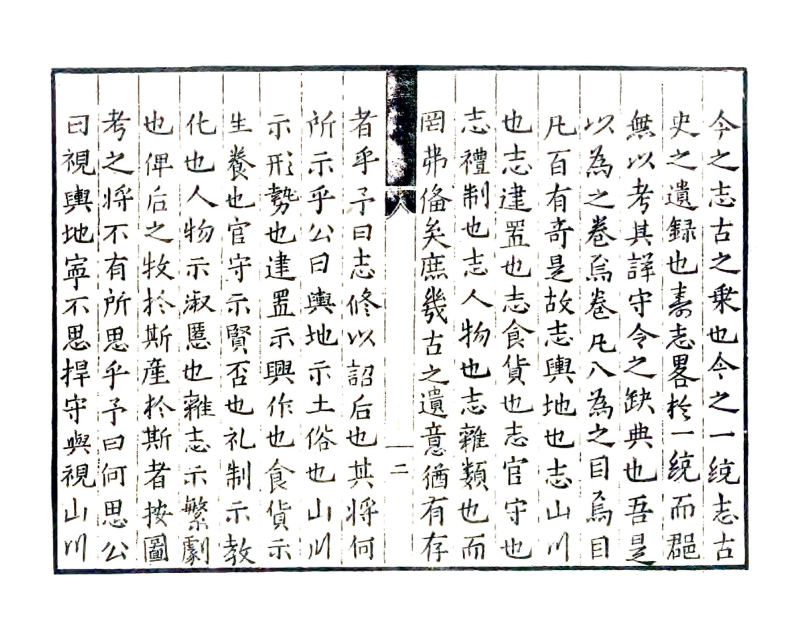 今之志古之乗也今之一統志古
史之遺録也夀志畧扵一統而郡
無以考其詳守令之缺典也吾是
以為之卷焉卷凡八為之目焉目
凡百有奇是故志輿地也志山川
也志建置也志食貨也志官守也
志禮制也志人物也志雜類也而
罔弗俻矣庶幾古之遺意猶有存
二
者乎予曰志修以詔后也其将何
所示乎公曰輿地示土俗也山川
示形勢也建置示興作也食貨示
生養也官守示賢否也礼制示教
化也人物示淑慝也雜志示繁劇
也俾后之牧扵斯產扵斯者按圖
考之将不有所思乎予曰何思公
曰視輿地寕不思捍守與視山川